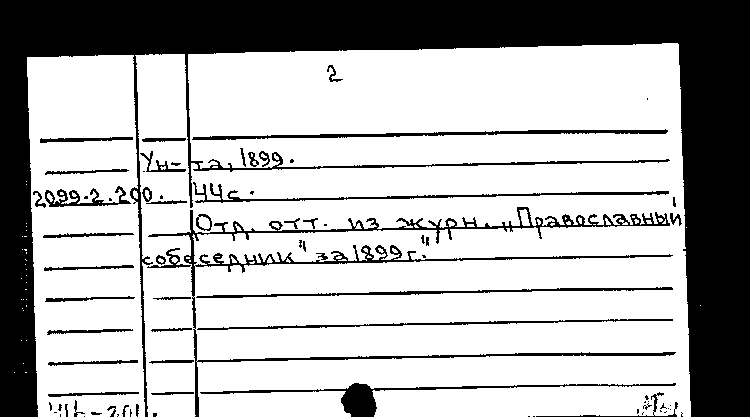 2
Ун-та, 1899.
2099.2.200. 44 с.
Отд. отт. из журн. „Православный
собеседник" за 1899 г."